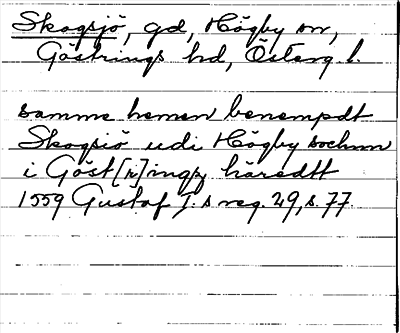 Skogsjö, gd, Högby sn,
Göstrings hd, Österg l.
samme hemen benempdt
Skogsiö udi Högby sochnn
i Göst[r]ingz häredtt
1559 Gustaf I:s reg. 29, s. 77.